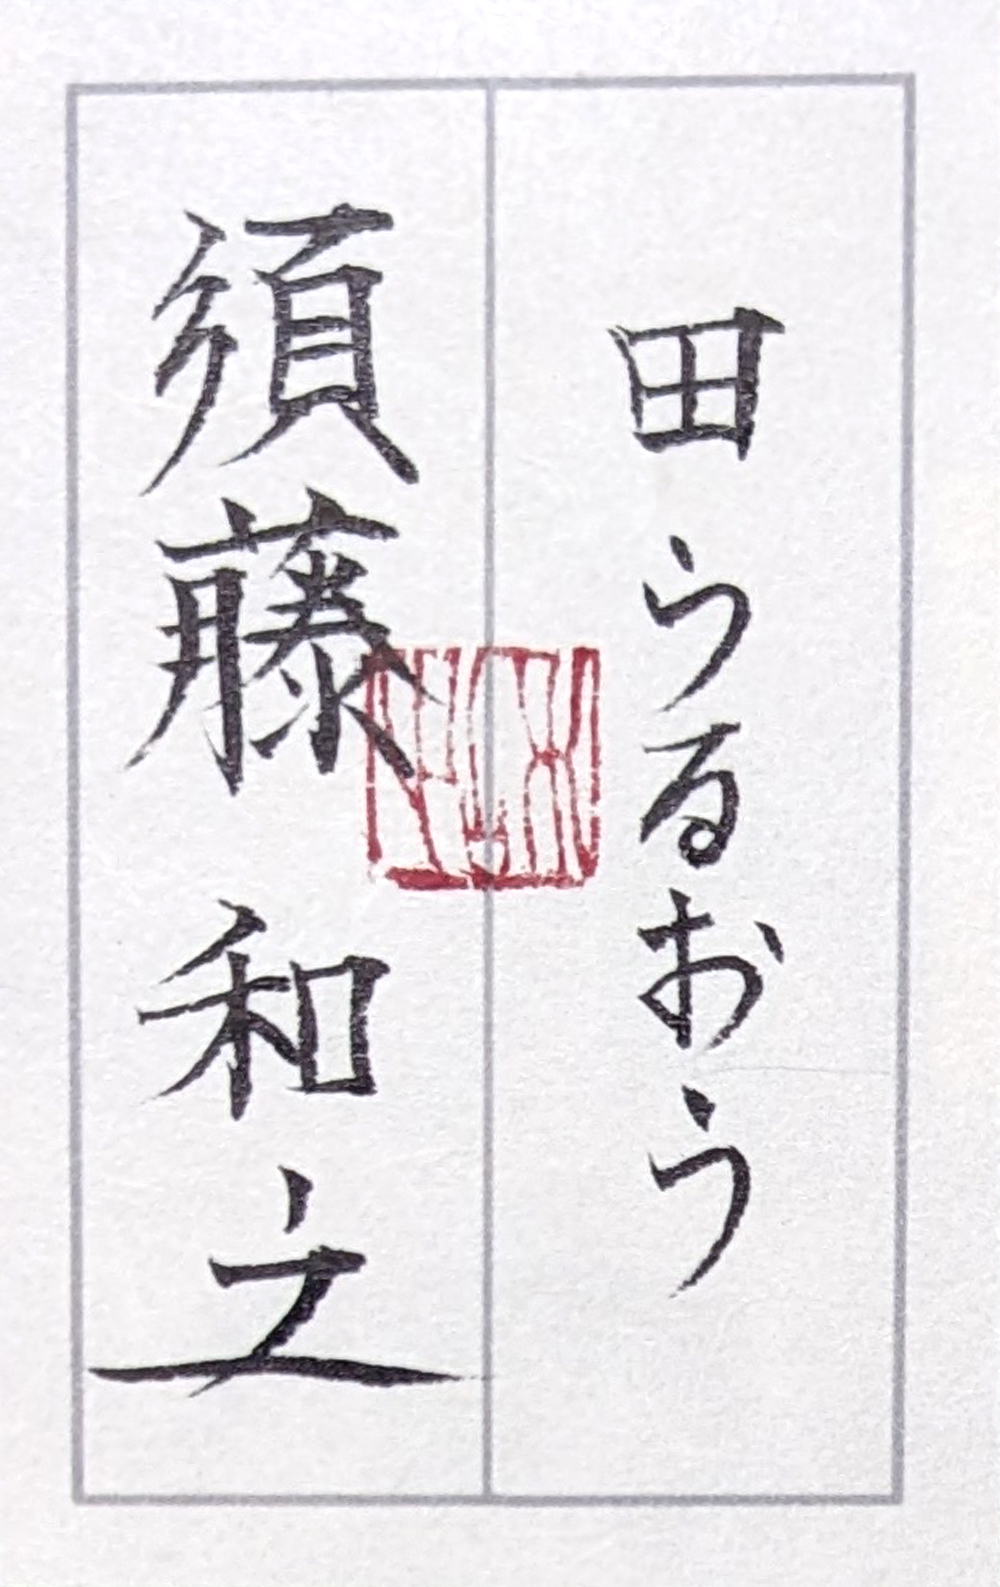 田うるおう
須藤和之